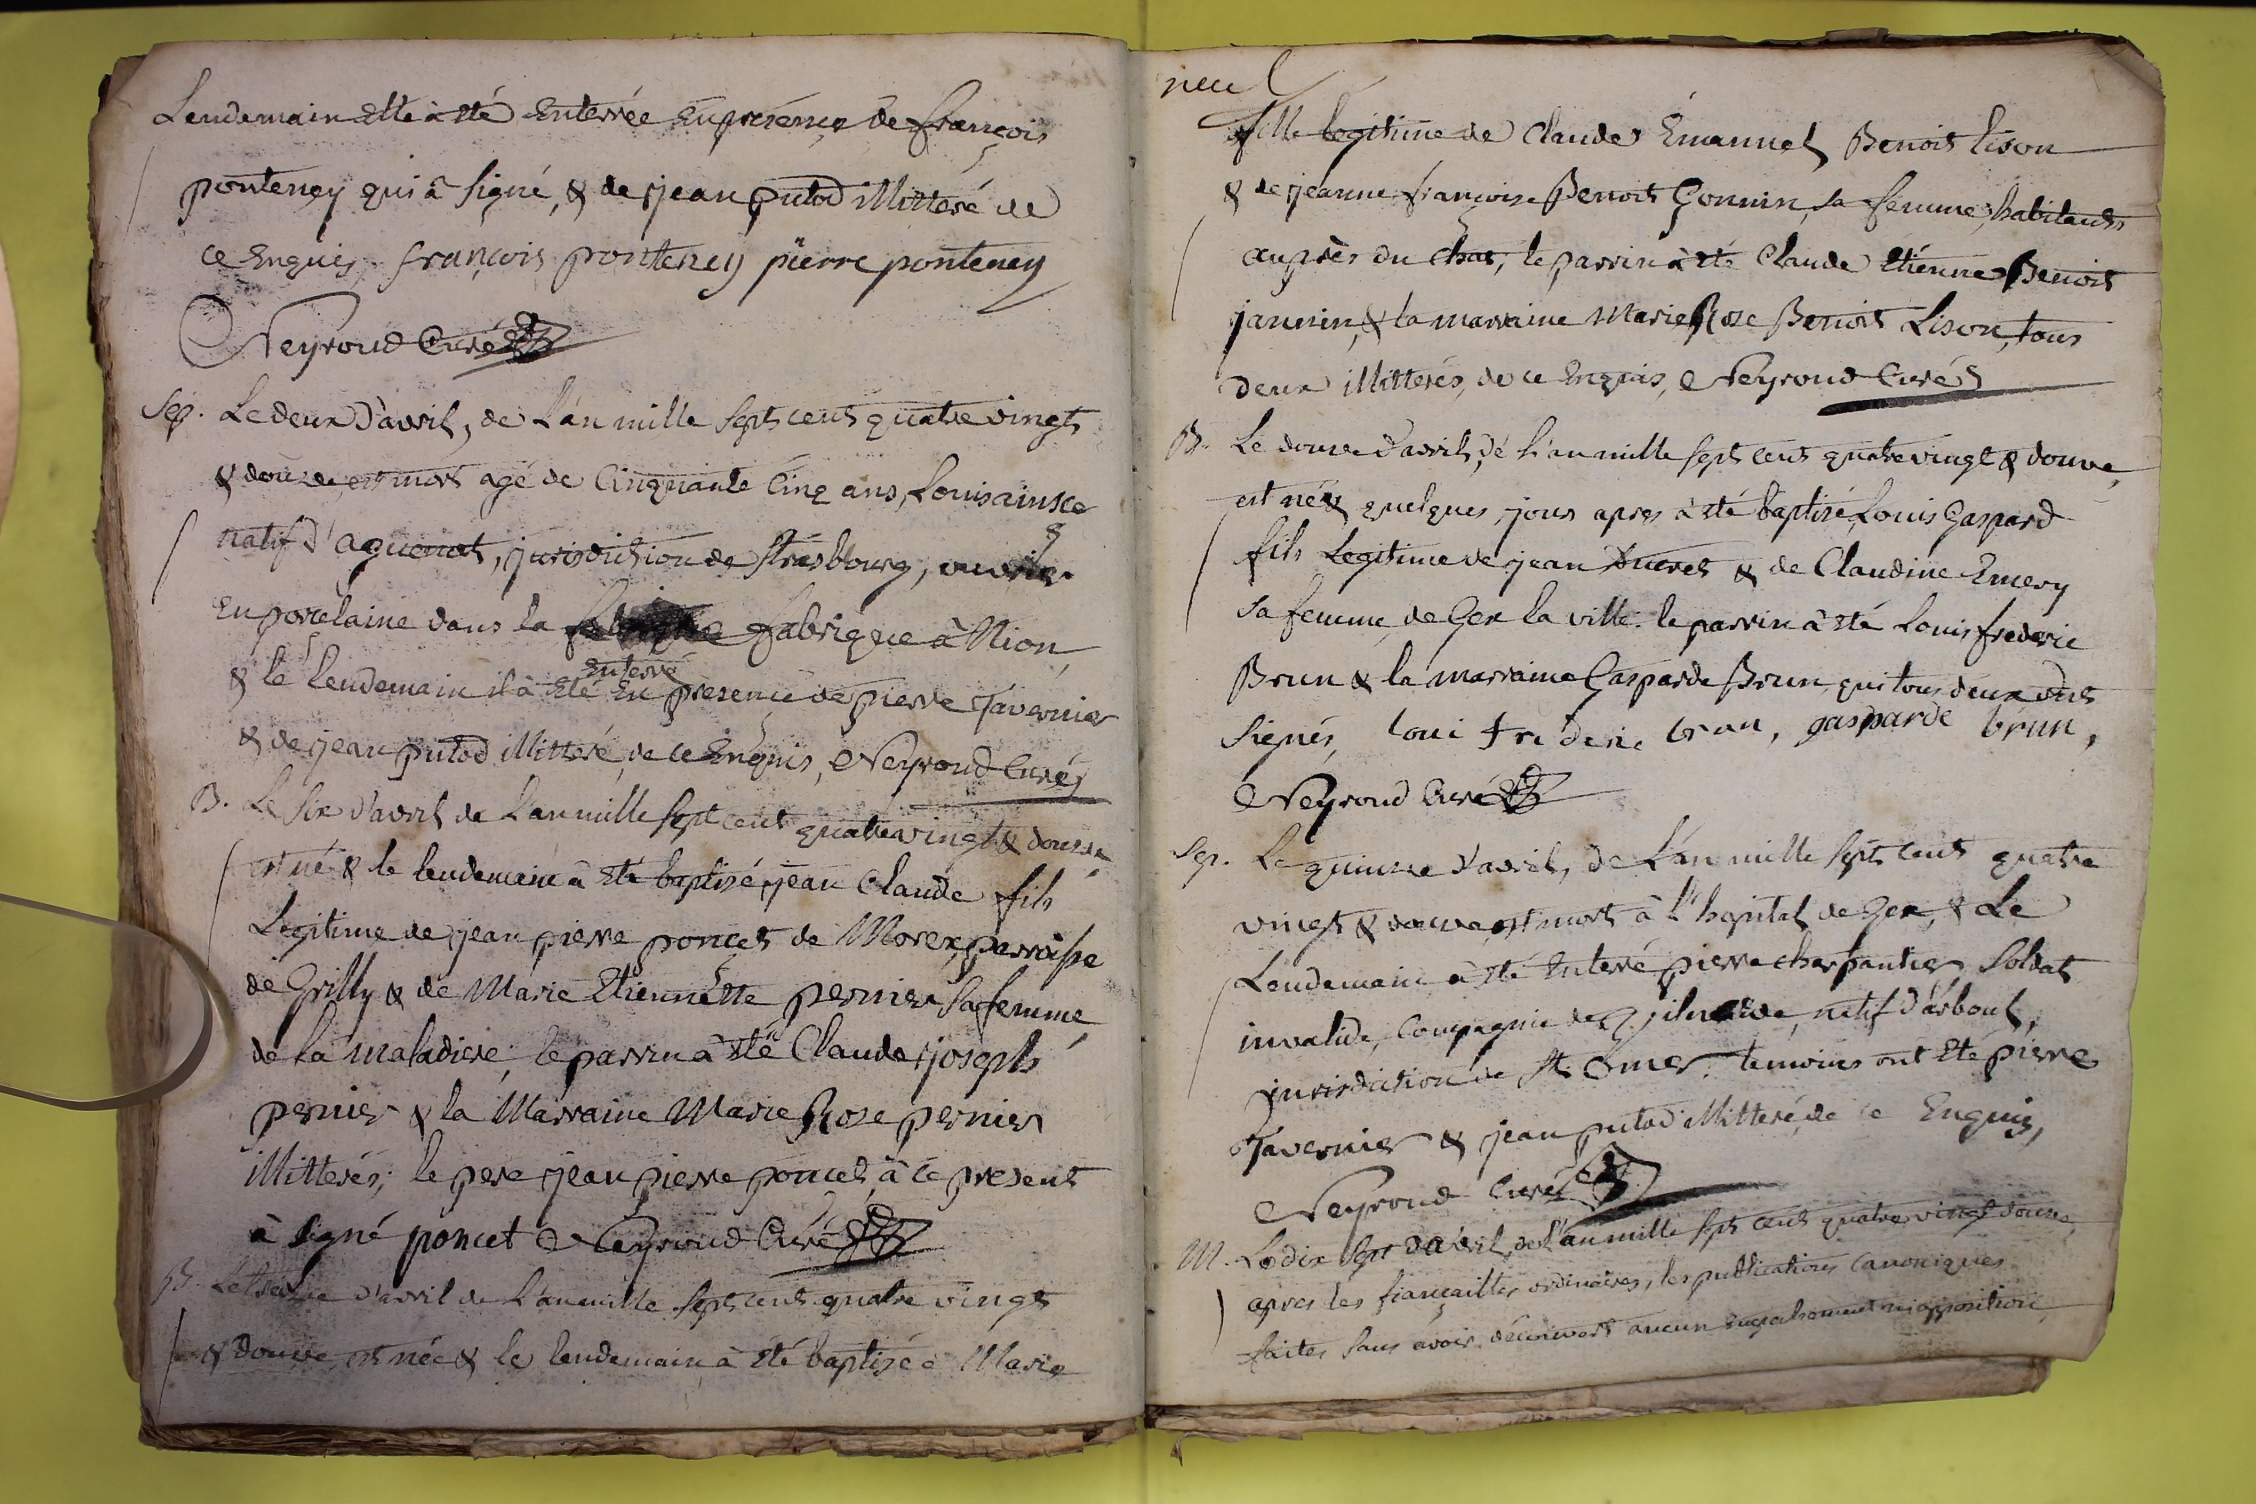 Lendemain Elle à eté Enterrée En presençe de françois
ponteney qui à signé, & de jean putod illitteré de
ce Enquis, françois ponteney pierre ponteney
Neyroud Curé
Sep. Le deux d'avril, de L'an mille sept cent quatre vingts
& douze, est mort agé de Cinquante Cinq ans, Louis
natif d'aguenot, jurisdiction de Strasbourg, ouvrier
En porcelaine dans la fabrique à Nion,
& le Lendemain il à eté Enterré En presençe de pierre Tavernier
& de jean putod illitteré, de ce Enquis, Neyroud Curé
B. Le Six d'avril de L'an mille sept cent quatre vingt & douze,
est né & le lendemain à eté baptisé jean Claude fils
Legitime de jean pierre ponçet de Morex, parroisse
de Grilly & de Marie Etiennette pernier sa femme,
de la maladiere, le parrin à eté Claude joseph
pernier & la Marraine Marie Rose pernier
illitterés; le pere jean pierre ponçet, à ce present
à signé poncet Neyroud Curé
B. Le d'avril de L'an mille sept cent quatre vingt
& douze, est née & le lendemain, à eté baptisée Marie
neuf
fille legitime de Claude Emanuel Benoit Lison
& de jeanne françoise Benoit Gonnin, sa femme, habitants
auprès du Chat, le parrin à eté Claude Etienne Benoit
jannin, & la marraine Marie Rose Benoit Lison, tous
deux illitterés, de ce Enquis, Neyroud Curé
B. Le douze d'avril, de L'an mille sept cent quatre vingt & douze,
est né & quelques jour apres à eté baptisé, Louis Gaspard
fils Legitime de jean Ducret & de Claudine Emery
sa femme, de Gex la ville. le parrin à eté Louis frederic
Brun & la marraine Gasparde Brun, qui tous deux ont
signés, loui frederic brun, gasparde brun,
Neyroud Curé
Sep. Le quinze d'avril, de L'an mille sept cent quatre
vingt & douze, est mort à l'hopital de Gex, & Le
Lendemain à eté Enterré pierre charpantier Soldat
invalide, Compagnie de natif d'arbout,
jurisdiction de St Omer. temoins ont eté pierre
Tavernier & jean putod illitteré, de ce Enquis,
Neyroud Curé
M. Le dix sept d'avril, de L'an mille sept cent quatre vingt douze,
apres les fiançailles ordinaires, les publications Canoniques
faites sans avoir découvert aucun Empechement ni opposition,